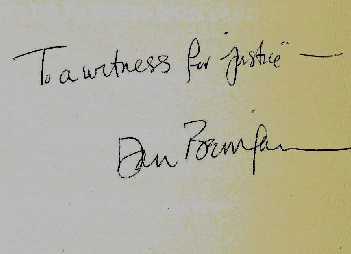 To a witness for "justice" —
Dan Berrigan